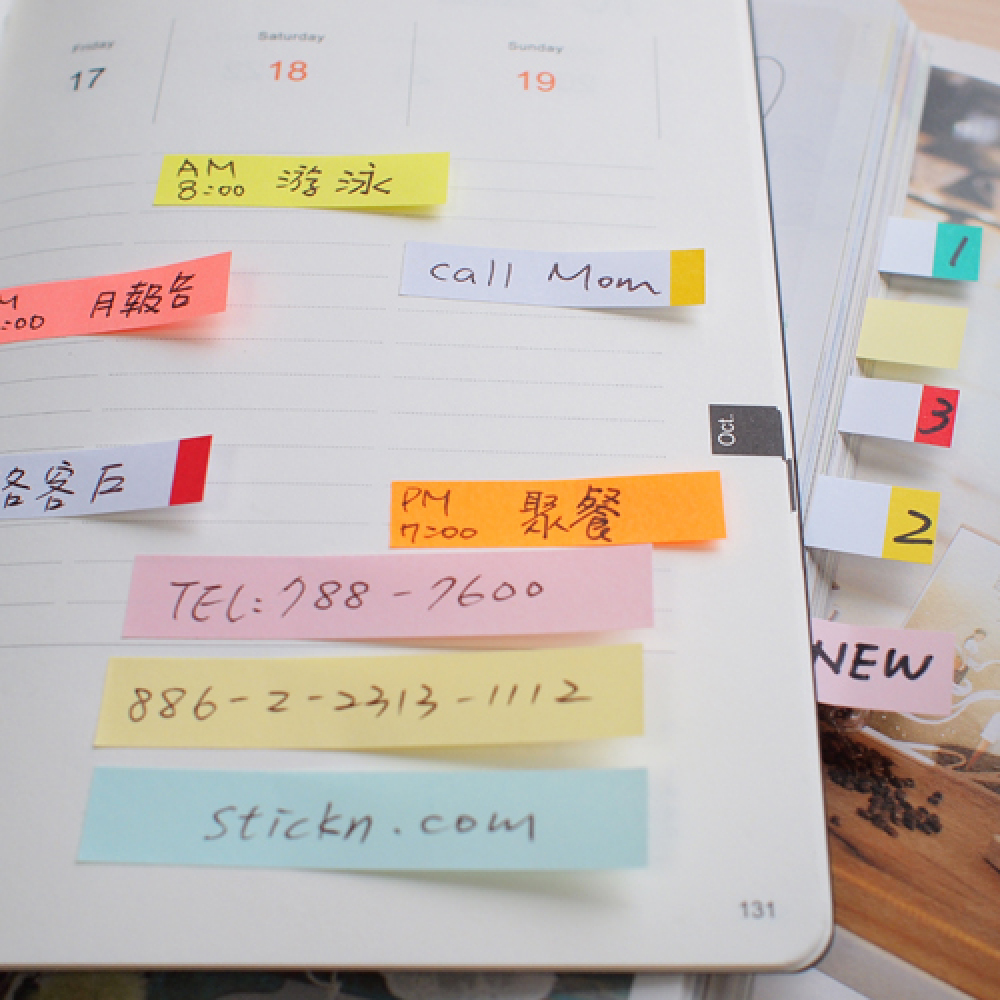 Friday
Saturday
Sunday
17
18
19
AM
8:00 游泳
M
:00 月報告
call Mom
1
3
2
NEW
Oct.
客戶
PM
7:00 聚餐
TEL:788-7600
886-2-2313-1112
Stickn.com
131